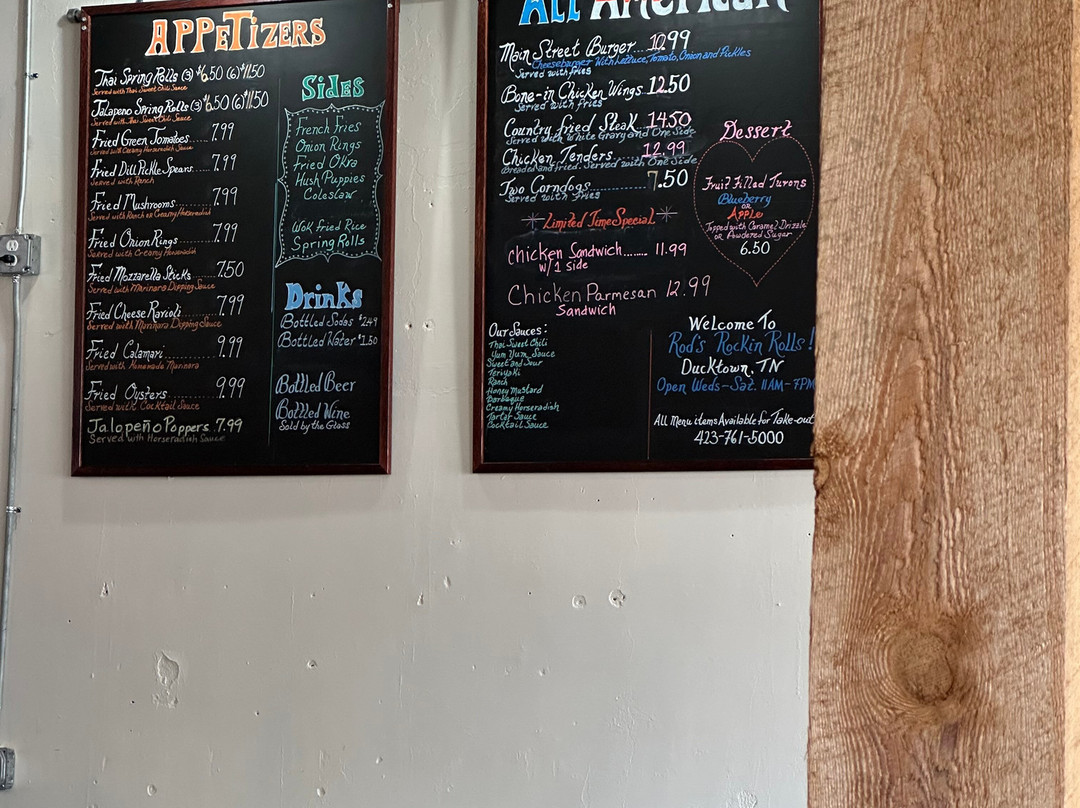 APPETIZERS
Thai Spring Rolls (3) $6.50 (6) $11.50
Served with Thai Sweet Chili Sauce
Jalapeno Spring Rolls (3) $6.50 (6) $11.50
Served with Thai Sweet Chili Sauce
Fried Green Tomatoes....7.99
Served with Creamy Horseradish Sauce
Fried Dill Pickle Spears....7.99
Served with Ranch
Fried Mushrooms........7.99
Served with Ranch or Creamy Horseradish
Fried Onion Rings........7.99
Served with Creamy Horseradish
Fried Mozzarella Sticks.....7.50
Served with Marinara Dipping Sauce
Fried Cheese Ravioli........7.99
Served with Marinara Dipping Sauce
Fried Calamari..........9.99
Served with Homemade Marinara
Fried Oysters..........9.99
Served with Cocktail Sauce
Jalapeño Poppers .7.99
Served with Horseradish Sauce
Sides
French Fries
Onion Rings
Fried Okra
Hush Puppies
Coleslaw
Wok Fried Rice
Spring Rolls
Drinks
Bottled Sodas $2.49
Bottled Water $1.50
Bottled Beer
Bottled Wine
Sold by the Glass
All American
Main Street Burger...10.99
Cheeseburger With Lettuce, Tomato, Onion and Pickles
Served with fries
Bone-in Chicken Wings..12.50
Served with fries
Country Fried Steak...14.50
Served with White Gravy and One Side
Chicken Tenders......12.99
Breaded and fried. Served with One Side
Two Corndogs...........7.50
Served with Fries
Limited Time Special
chicken Sandwich....... 11.99
w/1 side
Chicken Parmesan 12.99
Sandwich
Dessert
Fruit Filled Turons
Blueberry
OR
Apple
Topped with Caramel Drizzle
OR Powdered Sugar
6.50
Our Sauces:
Thai Sweet Chili
Yum Yum Sauce
Sweet and Sour
Teriyaki
Ranch
Honey Mustard
Barbeque
Creamy Horseradish
Tartar Sauce
Cocktail Sauce
Welcome To
Rod's Rockin Rolls!
Ducktown, TN
Open Weds-Sat. 11AM-7PM
All Menu items Available for Take-out
423-761-5000